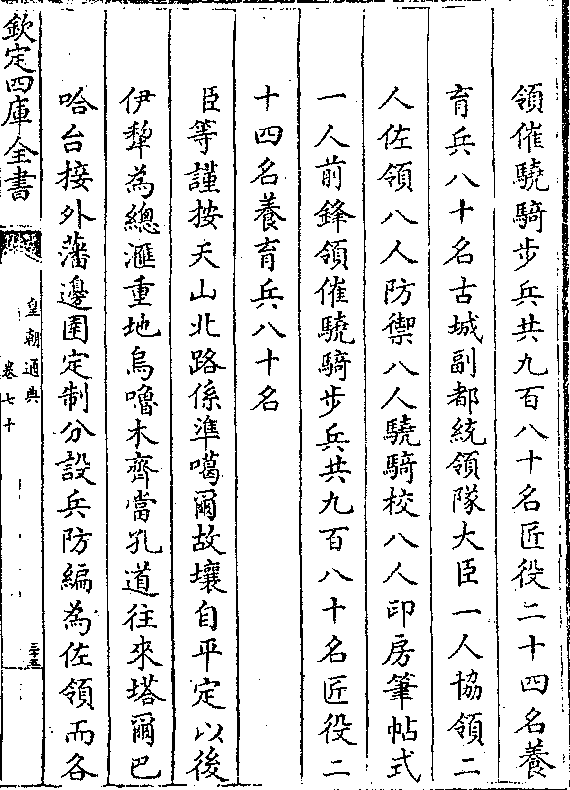 領催驍騎步兵共九百八十名匠役二十四名養
育兵八十名古城副都統領隊大臣一人協領二
人佐領八人防禦八人驍騎校八人印房筆帖式
一人前鋒領催驍騎步兵共九百八十名匠役二
十四名養育兵八十名
臣等謹按天山北路係準噶爾故壤自平定以後
伊犂為總滙重地烏嚕木齊當孔道往來塔爾巴
哈台接外藩邊圉定制分設兵防編為佐領而各
欽定四庫全書
皇朝通典
卷七十
三十五